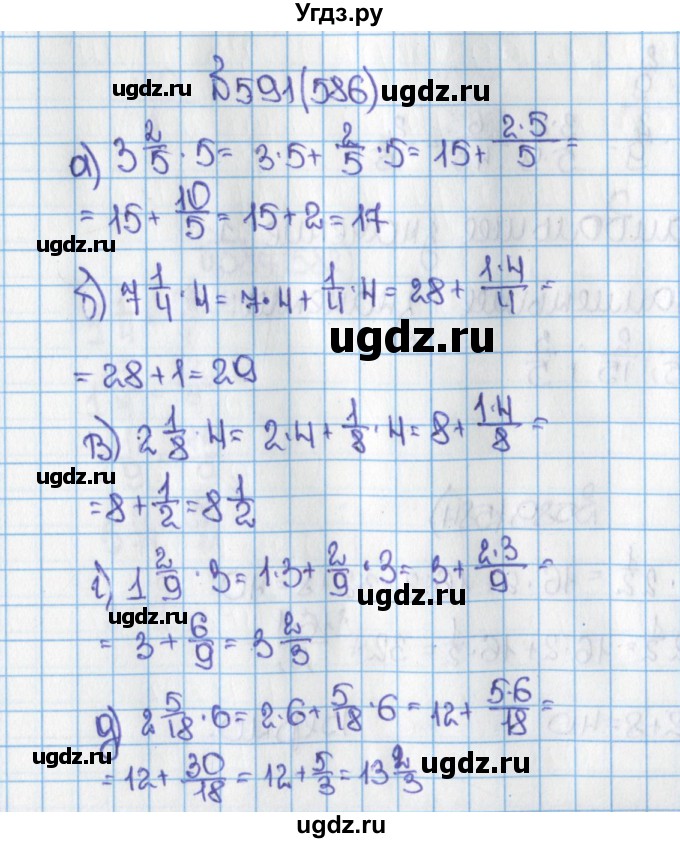 Угдз.ру
ugdz.ru №591(586) ugdz.ru
а) 3 2/5 · 5 = 3·5 + 2/5 · 5 = 15 + 2·5/5 =
= 15 + 10/5 = 15 + 2 = 17
ugdz.ru
б) 7 1/4 · 4 = 7·4 + 1/4 · 4 = 28 + 1·4/4 =
ugdz.ru
= 28 + 1 = 29
в) 2 1/8 · 4 = 2·4 + 1/8 · 4 = 8 + 1·4/8 =
ugdz.ru
= 8 + 1/2 = 8 1/2
г) 1 2/9 · 3 = 1·3 + 2/9 · 3 = 3 + 2·3/9 =
ugdz.ru
= 3 + 6/9 = 3 2/3
д) 2 5/18 · 6 = 2·6 + 5/18 · 6 = 12 + 5·6/18 =
ugdz.ru
= 12 + 30/18 = 12 + 5/3 = 13 2/3
ugdz.ru
ugdz.ru